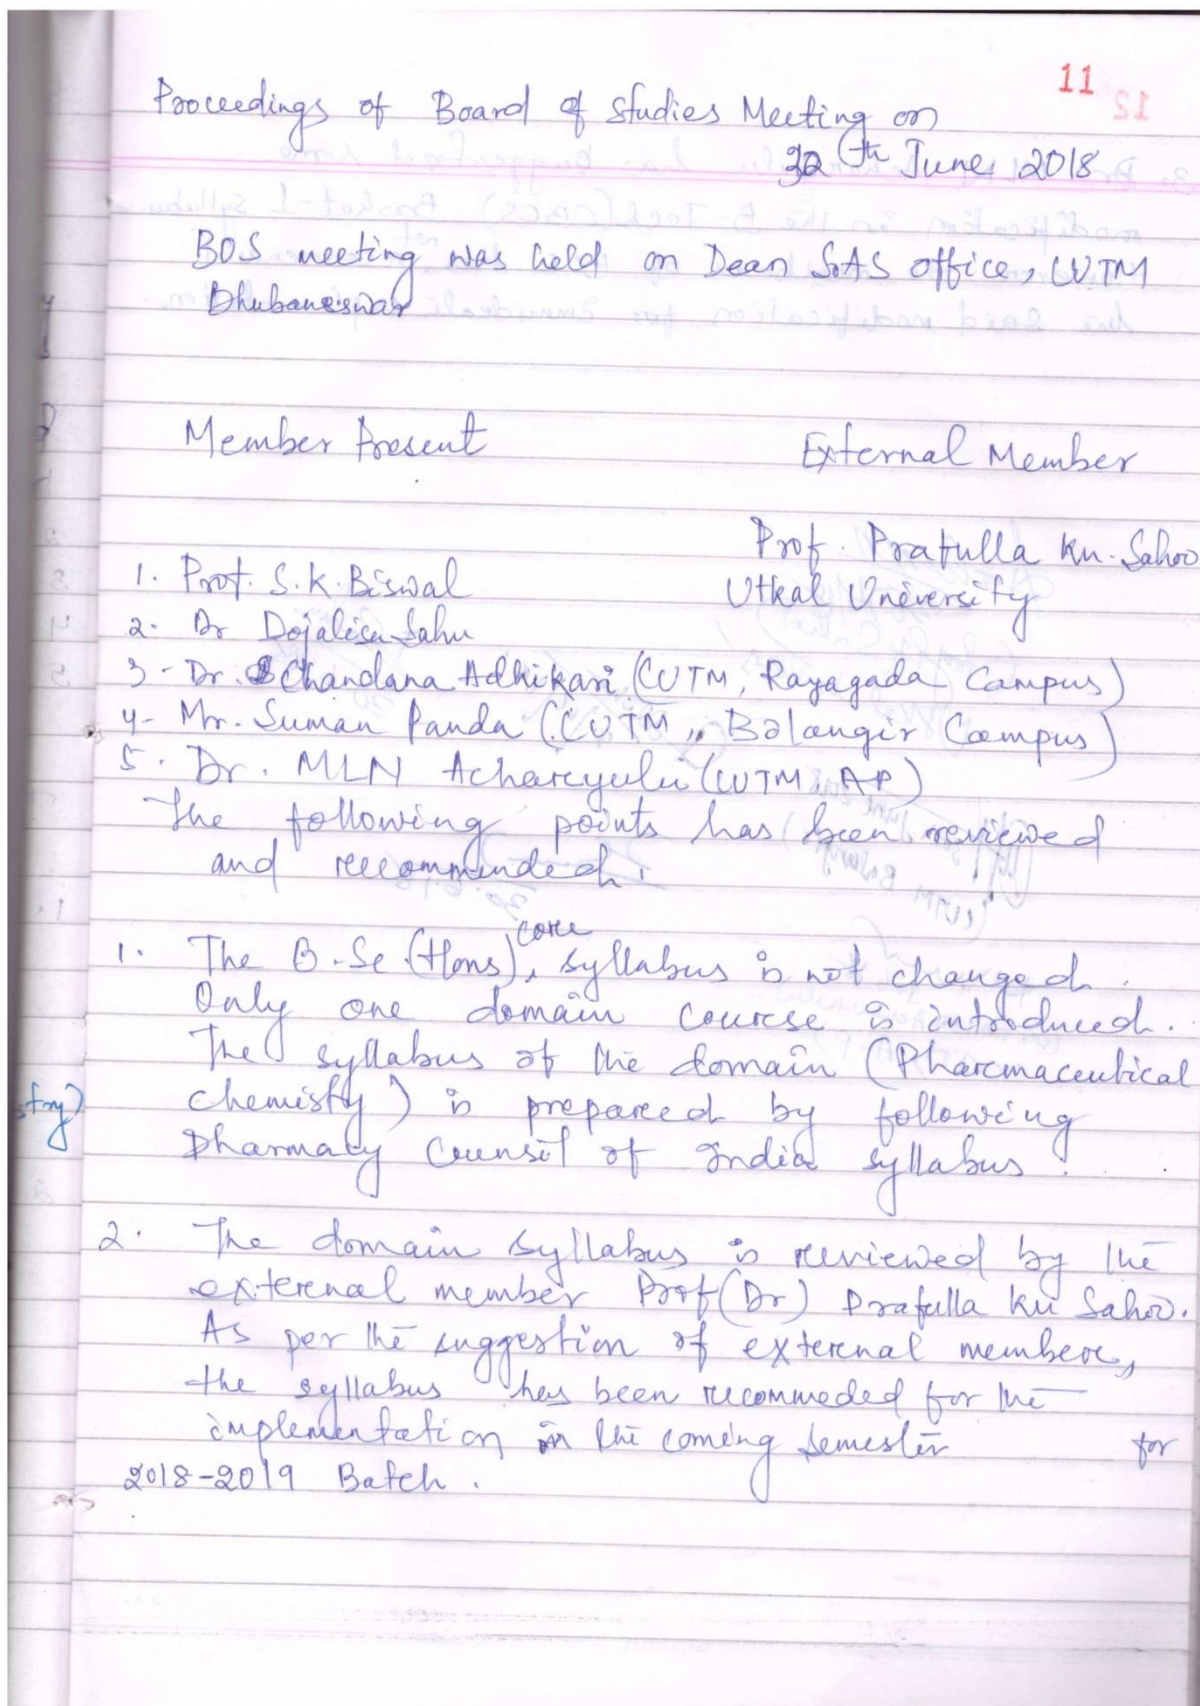 11
Proceedings of Board of Studies Meeting on
30th June 2018
BOS meeting was held on Dean SoAS office, CUTM
Bhubaneswar
Member Present
External Member
Prof. Prafulla Ku. Sahoo
Utkal University
1. Prof. S.K. Biswal
2. Dr Dojalisa Sahu
3- Dr. Chandana Adhikari (CUTM, Rayagada Campus)
4- Mr. Suman Panda (CUTM, Balangir Campus)
5. Dr. MLN Acharyulu (CUTM AP)
The following points has been reviewed
and recommended.
1. The B.Sc. (Hons) core syllabus is not changed.
Only one domain course is introduced.
The syllabus of the domain (Pharmaceutical
chemisty) is prepared by following
Pharmacy Counsil of India syllabus.
2. The domain syllabus is reviewed by the
external member Prof (Dr) Prafulla Ku Sahoo.
As per the suggestion of external member,
the syllabus has been recommeded for the
implementation in the coming semester for
2018-2019 Batch.